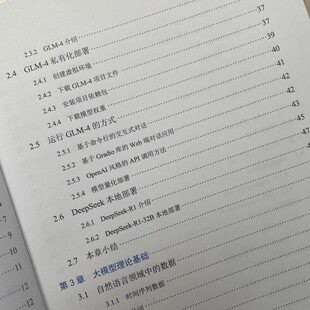 2.3.2 GLM-4 介绍 37
2.4 GLM-4 私有化部署 37
2.4.1 创建虚拟环境
2.4.2 下载 GLM-4 项目文件
2.4.3 安装项目依赖包
2.4.4 下载模型权重
2.5 运行 GLM-4 的方式
2.5.1 基于命令行的交互式对话
2.5.2 基于 Gradio 库的 Web 端对话应用
2.5.3 OpenAI 风格的 API 调用方法
2.5.4 模型量化部署
2.6 DeepSeek 本地部署
2.6.1 DeepSeek-R1 介绍
2.6.2 DeepSeek-R1-32B 本地部署
2.7 本章小结
第 3 章 大模型理论基础
3.1 自然语言领域中的数据
3.1.1 时间序列数据